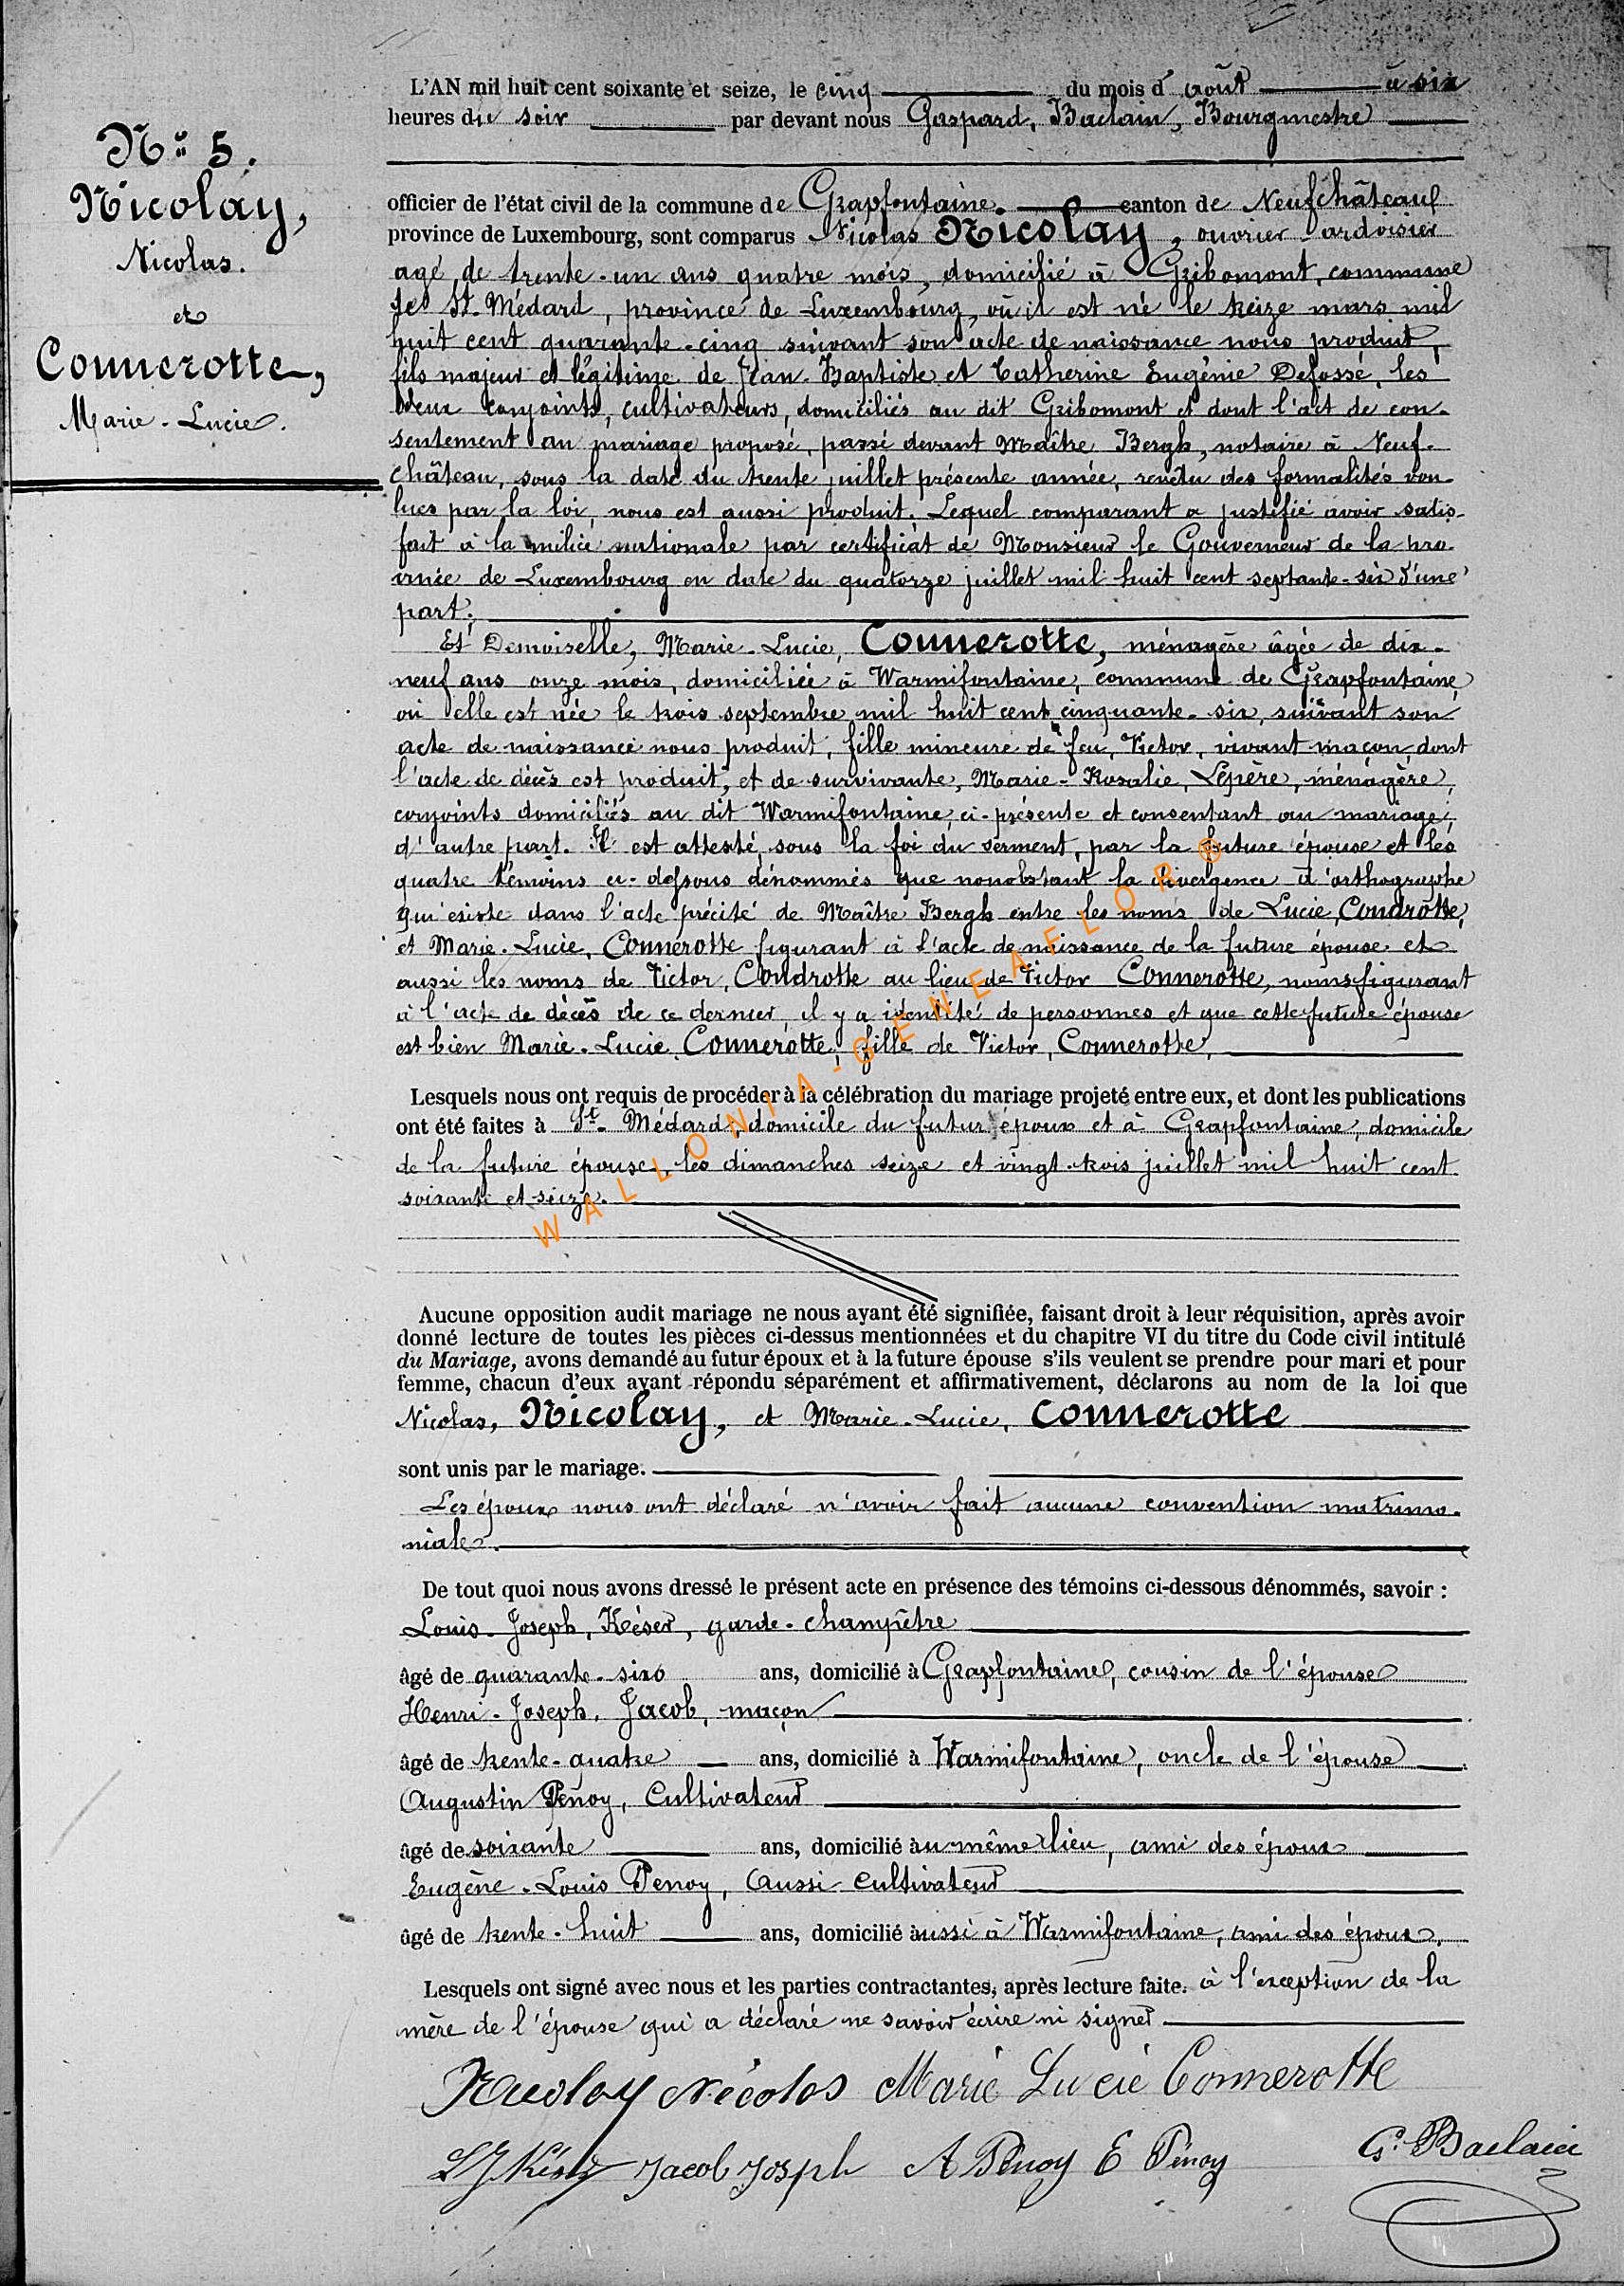 N° 5.
Nicolay,
Nicolas.
et
Connerotte,
Marie-Lucie.
L'AN mil huit cent soixante et seize, le cinq du mois d'août à six
heures du soir par devant nous Gaspard, Baclain, Bourgmestre
officier de l'état civil de la commune de Grapfontaine canton de Neufchâteau
province de Luxembourg, sont comparus Nicolas Nicolay, ouvrier ardoisier
agé de trente-un ans quatre mois, domicilié à Gribomont, commune
de St. Médard, province de Luxembourg, où il est né le treize mars mil
huit cent quarante-cinq suivant son acte de naissance nous produit,
fils majeur et légitime de Jean-Baptiste et Catherine Eugénie Defossé, les
deux conjoints, cultivateurs, domiciliés au dit Gribomont et dont l'act de con-
sentement au mariage proposé, passé devant Maître Bergh, notaire à Neuf-
château, sous la date du trente juillet présente année, revêtu des formalités vou-
lues par la loi, nous est aussi produit. Lequel comparant a justifié avoir satis-
fait à la milice nationale par certificat de Monsieur le Gouverneur de la pro-
vince de Luxembourg en date du quatorze juillet mil huit cent septante-six d'une
part;
Et Demoiselle, Marie-Lucie, Connerotte, ménagère âgée de dix-
neuf ans onze mois, domiciliée à Warmifontaine, commune de Grapfontaine
où elle est née le trois septembre mil huit cent cinquante-six, suivant son
acte de naissance nous produit, fille mineure de feu, Victor, vivant maçon dont
l'acte de décès est produit, et de survivante, Marie-Rosalie, Lepère, ménagère,
conjoints domiciliés au dit Warmifontaine, ci-présente et consentant au mariage;
d'autre part. Il est attesté, sous la foi du serment, par la future épouse et les
quatre témoins ci-dessous dénommés que nonobstant la divergence d'orthographe
qui existe dans l'acte précité de Maître Bergh entre les noms de Lucie, Condrotte,
et Marie-Lucie, Connerotte figurant à l'acte de naissance de la future épouse et
aussi les noms de Victor, Condrotte au lieu de Victor Connerotte, noms figurant
à l'acte de décès de ce dernier, il y a identité de personnes et que cette future épouse
est bien Marie-Lucie, Connerotte, fille de Victor, Connerotte,
Lesquels nous ont requis de procéder à la célébration du mariage projeté entre eux, et dont les publications
ont été faites à St. Médard, domicile du futur époux et à Grapfontaine, domicile
de la future épouse, les dimanches seize et vingt-trois juillet mil huit cent
soixante et seize.
WALLONIA-GENEAFLOR ®
Aucune opposition audit mariage ne nous ayant été signifiée, faisant droit à leur réquisition, après avoir
donné lecture de toutes les pièces ci-dessus mentionnées et du chapitre VI du titre du Code civil intitulé
du Mariage, avons demandé au futur époux et à la future épouse s'ils veulent se prendre pour mari et pour
femme, chacun d'eux ayant répondu séparément et affirmativement, déclarons au nom de la loi que
Nicolas, Nicolay, et Marie-Lucie, Connerotte
sont unis par le mariage.
Les époux nous ont déclaré n'avoir fait aucune convention matrimo-
niale.
De tout quoi nous avons dressé le présent acte en présence des témoins ci-dessous dénommés, savoir :
Louis-Joseph, Késer, garde-champêtre
âgé de quarante-six ans, domicilié à Grapfontaine, cousin de l'épouse
Henri-Joseph, Jacob, maçon
âgé de trente-quatre ans, domicilié à Warmifontaine, oncle de l'épouse
Augustin Pénoy, Cultivateur
âgé de soixante ans, domicilié au même lieu, ami des époux
Eugène-Louis Penoy, aussi cultivateur
âgé de trente-huit ans, domicilié aussi à Warmifontaine, ami des époux.
Lesquels ont signé avec nous et les parties contractantes, après lecture faite. à l'exception de la
mère de l'épouse qui a déclaré ne savoir écrire ni signer
Nicolay Nicolas Marie Lucie Connerotte
LJ Késer Jacob Josph A Pénoy E Pénoy G. Baclain